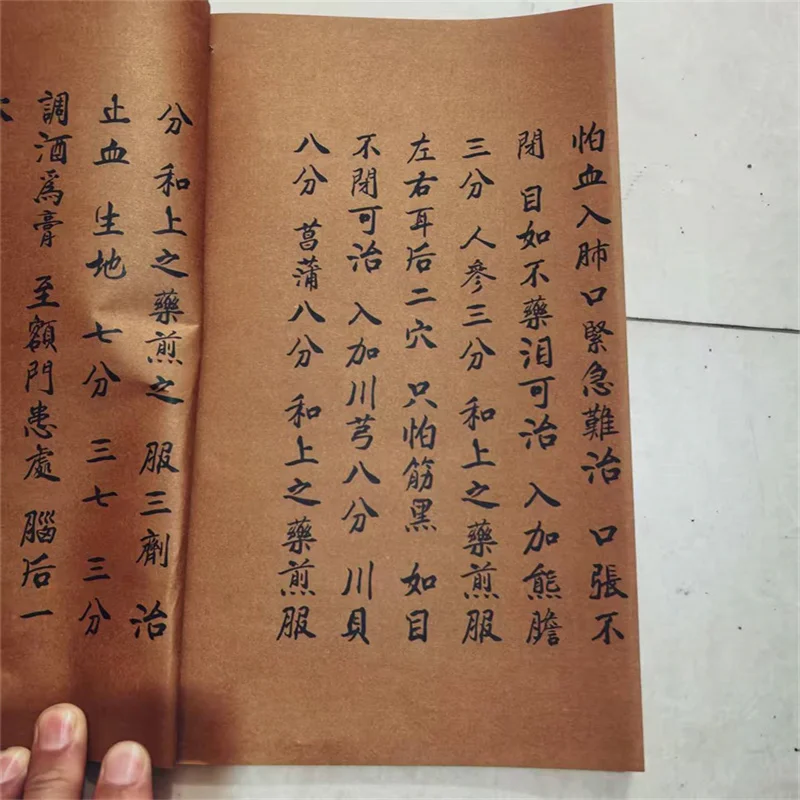 怕血入肺口緊急難治 口張不
閉 目如不藥泪可治 入加熊膽
三分 人參三分 和上之藥煎服
左右耳后二穴 只怕筋黑 如目
不閉可治 入加川芎八分 川貝
八分 菖蒲八分 和上之藥煎服
分 和上之藥煎之 服三劑 治
止血 生地 七分 三七 三分
調酒爲膏 至額門患處 腦后一